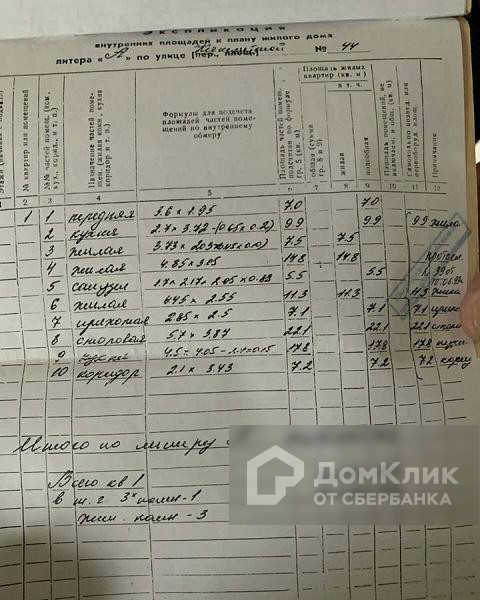 Экспликация
внутренних площадей к плану жилого дома
литера «А» по улице [пер., площ.] № 44
Этажи (начиная с подвала)
№№ квартир или помещений
№№ частей помещ. (ком., кух., корид. и т. п.)
Назначение частей помещений (жилая комн., кухня, коридор и т. п.)
Формулы для подсчета площадей частей помещений по внутреннему обмеру
Площадь частей помещ., подсчитан. по формуле гр. 5 (кв. м)
Площадь жилых квартир (кв. м)
общая (сумма гр. 8 и 9)
в т. ч.
жилая
подсобная
Примечание
2 3 4 5 6 7 8 9 10 11 12
1 1 передняя 3.6 × 1.95 7.0 7.0
2 кухня 2.7 × 3.72 - (0.65 × 0.2) 9.9 9.9 9.9 жила
3 жилая 7.5 7.5
4 жилая 4.85 × 3.05 14.8 14.8
5 санузел 5.5 5.5
6 жилая 4.45 × 2.55 11.3 11.3 11.3 жила
7 прихожая 2.85 × 2.5 7.1 7.1 7.1 прихо
8 столовая 5.7 × 3.87 22.1 22.1 22.1 столо
9 кухня 4.5 × 4.05 - 2.1 × 0.15 17.8 17.8 17.8 кухн
10 коридор 2.1 × 3.43 7.2 7.2 7.2 корид
Итого по литеру
Всего кв 1
в т. ч. 3х комн - 1
жил. комн - 3
ДомКлик
ОТ СБЕРБАНКА